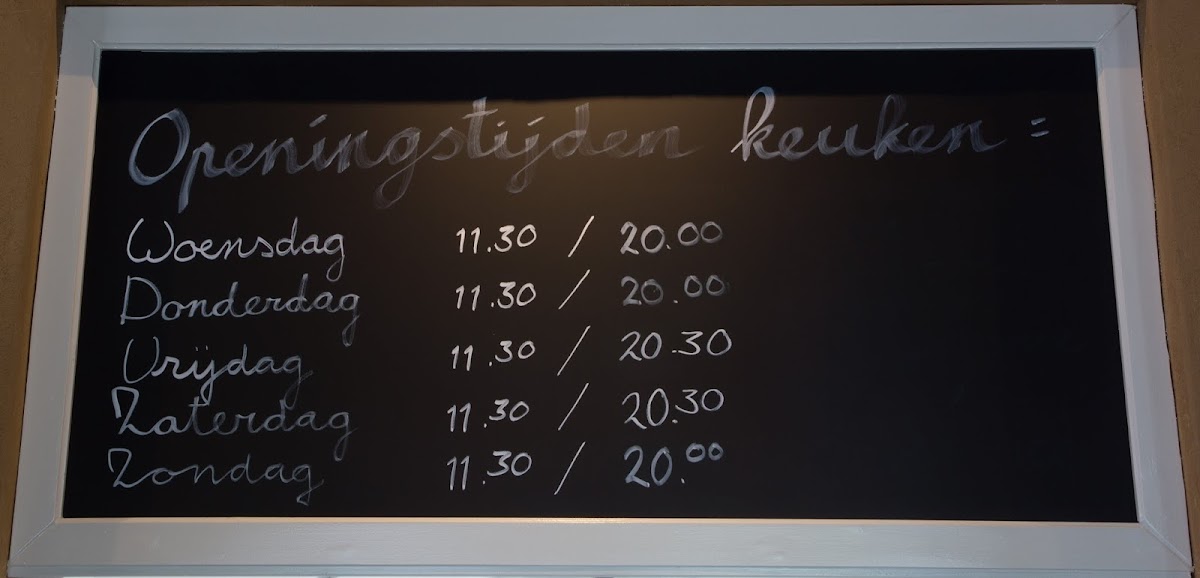 Openingstijden keuken =
Woensdag 11.30 / 20.00
Donderdag 11.30 / 20.00
Vrijdag 11.30 / 20.30
Zaterdag 11.30 / 20.30
Zondag 11.30 / 20.00